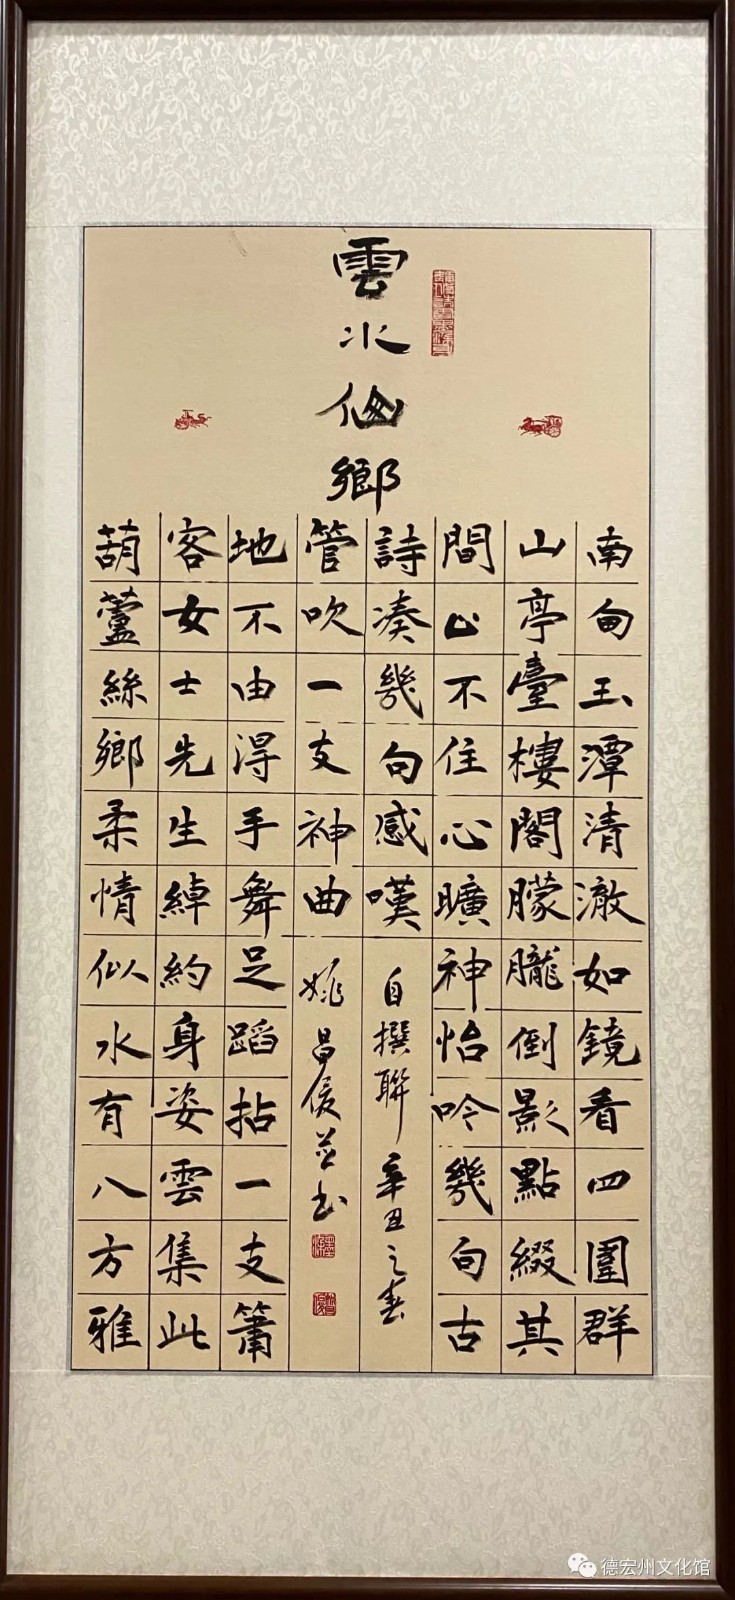 雲水仙鄉
南甸玉潭清澈如鏡看四圍群
山亭臺樓閣朦朧倒影點綴其
間止不住心曠神怡吟幾句古
詩凑幾句感嘆
葫蘆絲鄉柔情似水有八方雅
客女士先生綽約身姿雲集此
地不由得手舞足蹈拈一支簫
管吹一支神曲
自撰聯辛丑之春
姚昌俊並书
德宏州文化馆